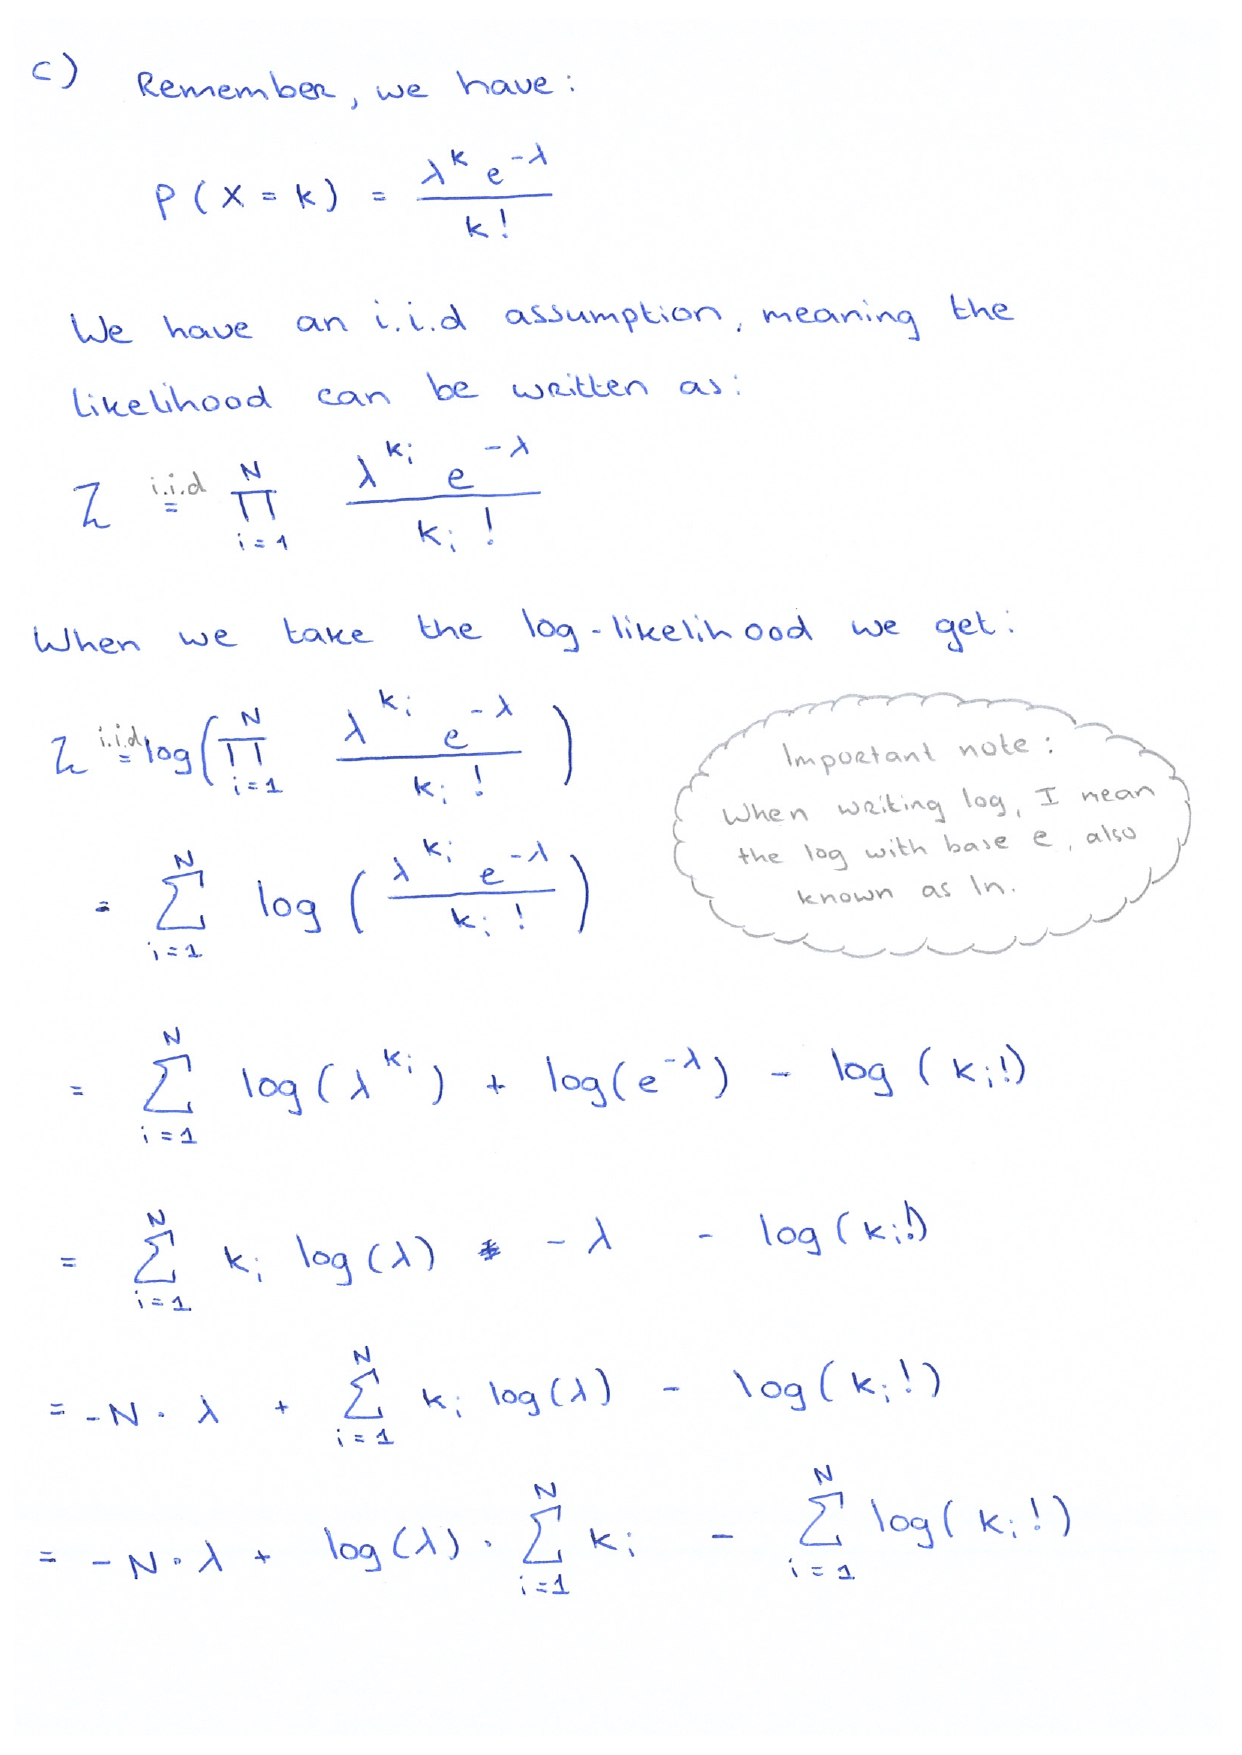 c) Remember, we have:
P(X = k) = λ^k e^-λ / k!
We have an i.i.d assumption, meaning the
likelihood can be written as:
L i.i.d = ∏_{i=1}^{N} λ^{k_i} e^{-λ} / k_i!
When we take the log-likelihood we get:
L i.i.d = log(∏_{i=1}^{N} λ^{k_i} e^{-λ} / k_i!)
Important note:
When writing log, I mean
the log with base e, also
known as ln.
= ∑_{i=1}^{N} log(λ^{k_i} e^{-λ} / k_i!)
= ∑_{i=1}^{N} log(λ^{k_i}) + log(e^{-λ}) - log(k_i!)
= ∑_{i=1}^{N} k_i log(λ) - λ - log(k_i!)
= -N · λ + ∑_{i=1}^{N} k_i log(λ) - log(k_i!)
= -N · λ + log(λ) · ∑_{i=1}^{N} k_i - ∑_{i=1}^{N} log(k_i!)